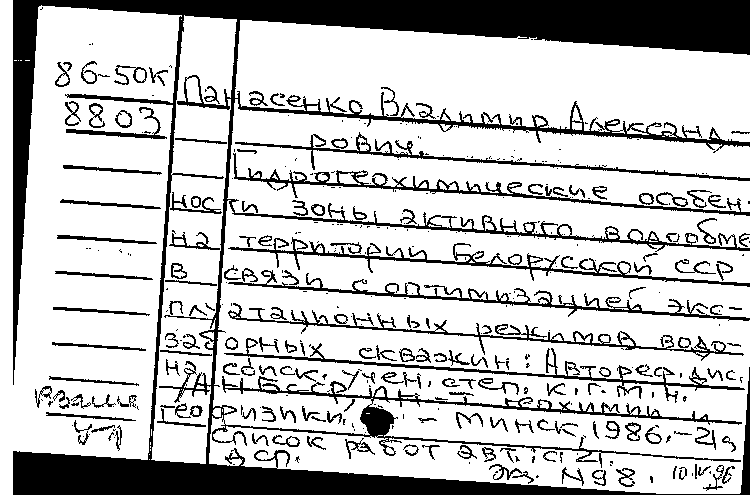 86-50К
8803
Панасенко, Владимир Александ-
рович.
Гидрогеохимические особен-
ности зоны активного водообме
на территории Белорусской ССР
в связи с оптимизацией экс-
плуатационных режимов водо-
заборных скважин: Автореф. дис.
на соиск. учен. степ. к.г.м.н.
/АН БССР, Ин-т геохимии и
геофизики. - Минск, 1986.-21с
Список работ авт.: с 21.
ДСП.
Экз. N98. 10.IV.96